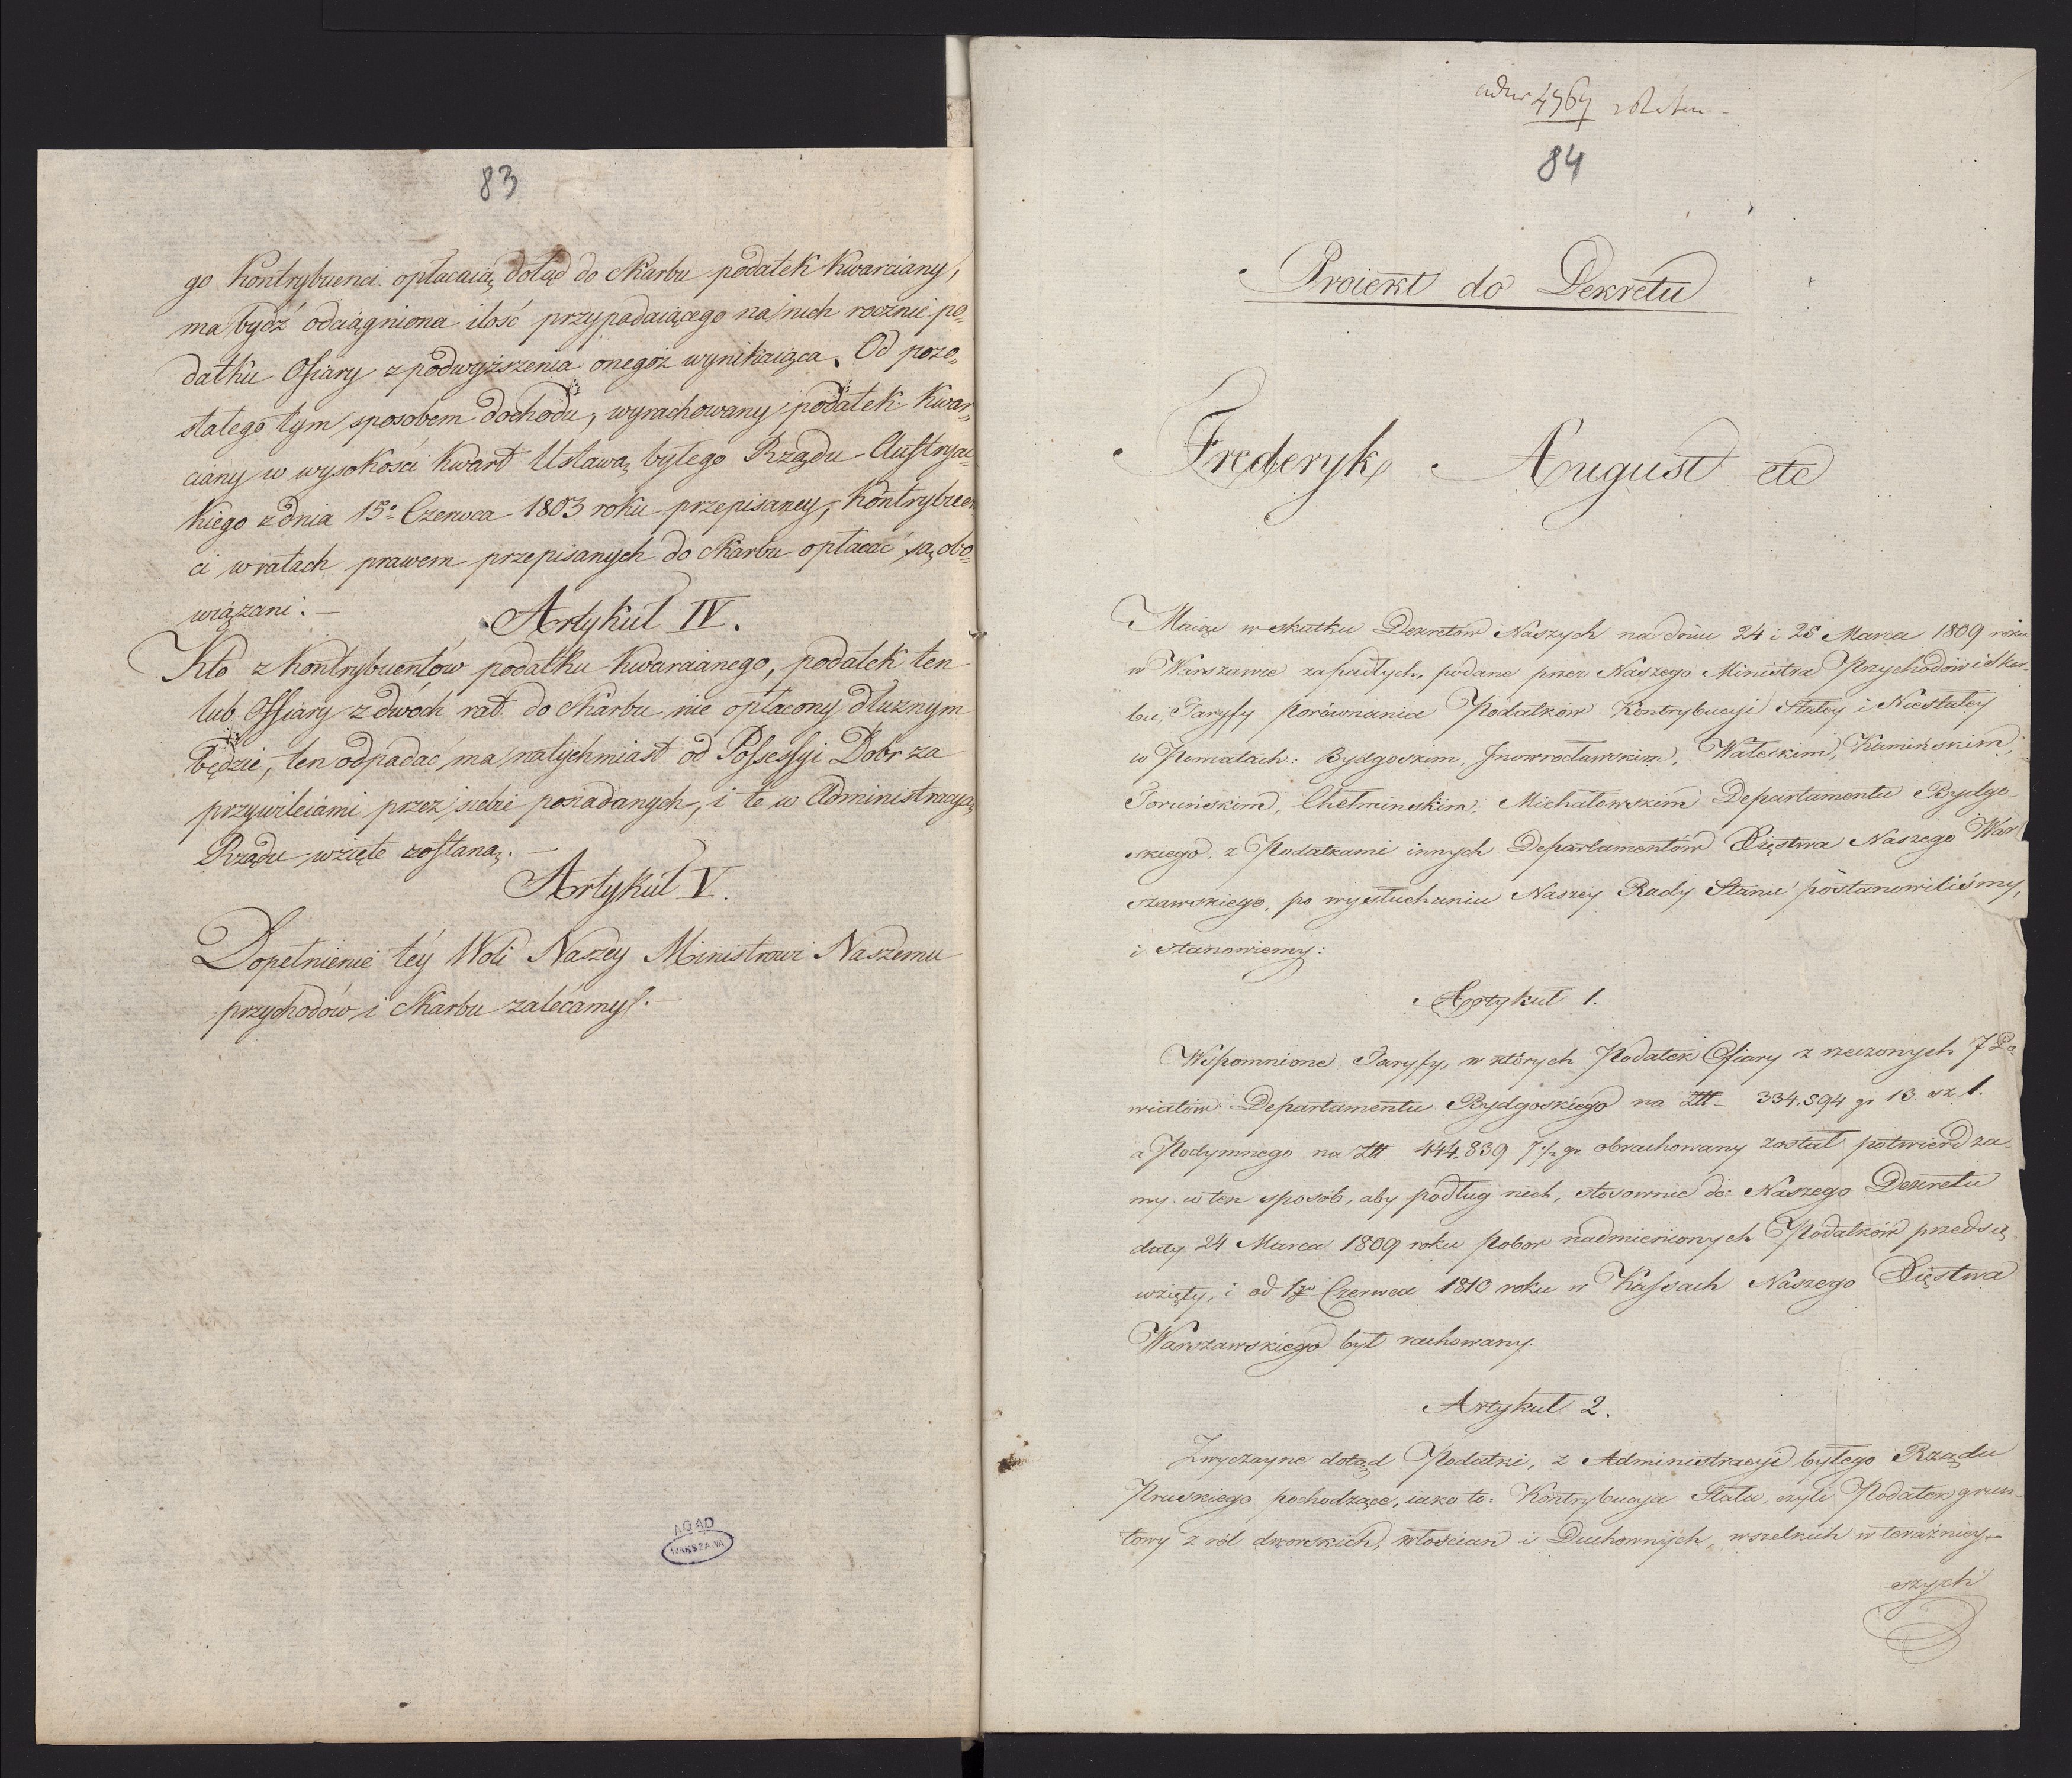 83
go Kontrybuenci opłacaią dotąd do Skarbu podatek Kwarciany,
ma bydź odciągniona ilość przypadaiącego na nich rocznie po=
datku Ofiary z podwyższenia onegoż wynikaiąca. Od pozo=
stałego tym sposobem dochodu, wyrachowany podatek Kwar=
ciany w wysokości kwart Ustawą byłego Rządu Austryac=
kiego z dnia 15º Czerwca 1803 roku przepisaney, Kontrybuen
ci w ratach prawem przepisanych do Skarbu opłacać są obo=
wiązani. —
Artykuł IV.
Kto z kontrybuentów podatku Kwarcianego, podatek ten
lub Offiary z dwóch rat do Skarbu nie opłacony dłużnym
będzie, ten odpadać ma natychmiast od Possessyi Dobr za
przywileiami przez siebie posiadanych, i te w Administracyą
Rządu wzięte zostaną. —
Artykuł V.
Dopełnienie téy Woli Naszey Ministrowi Naszemu
przychodów i Skarbu zalecamy. —
AGAD
WARSZAWA
4767
84
Proiekt do Dekretu
Frederyk August etc
Maiąc w skutku Dekretów Naszych na dniu 24 i 25 Marca 1809 roku
w Warszawie zapadłych, podane przez Naszego Ministra Przychodów i Skar-
bu, Taryfy porównania Podatków Kontrybucyi Stałey i Niestałey
w Powiatach: Bydgoskim, Jnowrocławskim, Wałeckim, Kamińskim,
Toruńskim, Chełminskim, Michałowskim Departamentu Bydgo-
skiego, z Podatkami innych Departamentów Xięstwa Naszego War
szawskiego, po wysłuchaniu Naszey Rady Stanu postanowiliśmy,
i stanowiemy:
Artykuł 1.
Wspomnione Taryfy, w których Podatek Ofiary z rzeczonych 7 Po-
wiatów Departamentu Bydgoskiego na Złł 334.594 gr 13 sz 1.
a Podymnego na Złł 444.839 7½ gr obrachowany został potwierdza-
my w ten sposób, aby podług nich, stosownie do Naszego Dekretu
daty 24 Marca 1809 roku pobór nadmienionych Podatków przedsię
wzięty, i od 1go Czerwca 1810 roku w Kassach Naszego Xięstwa
Warszawskiego był rachowany.
Artykuł 2.
Zwyczayne dotąd Podatki, z Administracyi byłego Rządu
Pruskiego pochodzące, iako to: Kontrybucya Stała, czyli Podatek grun-
towy z ról dworskich, włościan i Duchownych, wszelkich w teraźniey-
szych